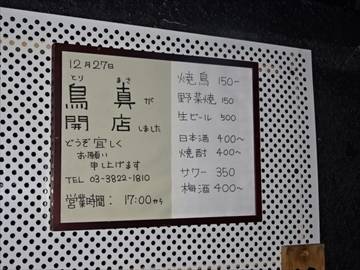 12月27日
とり まさ
鳥 真が
開 店しました
どうぞ宜しく
お願い
申し上げます
TEL 03-3822-1810
営業時間： 17:00から
焼鳥 150〜
野菜焼 150
生ビール 500
日本酒 400〜
焼酎 400〜
サワー 350
梅酒 400〜